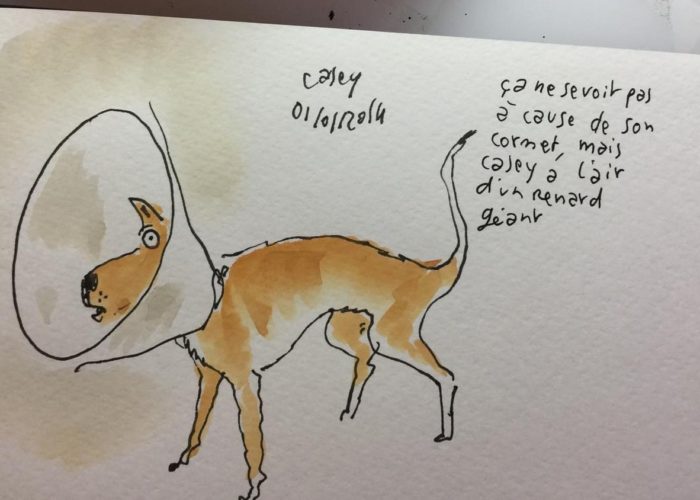 casey
01/01/2014
ça ne se voit pas
à cause de son
cornet, mais
casey à l'air
d'un renard
géant